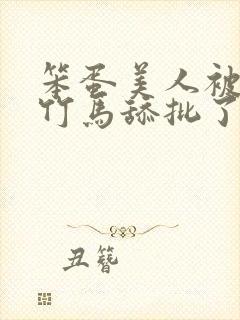 笨蛋美人被
竹马舔批了
丑簪